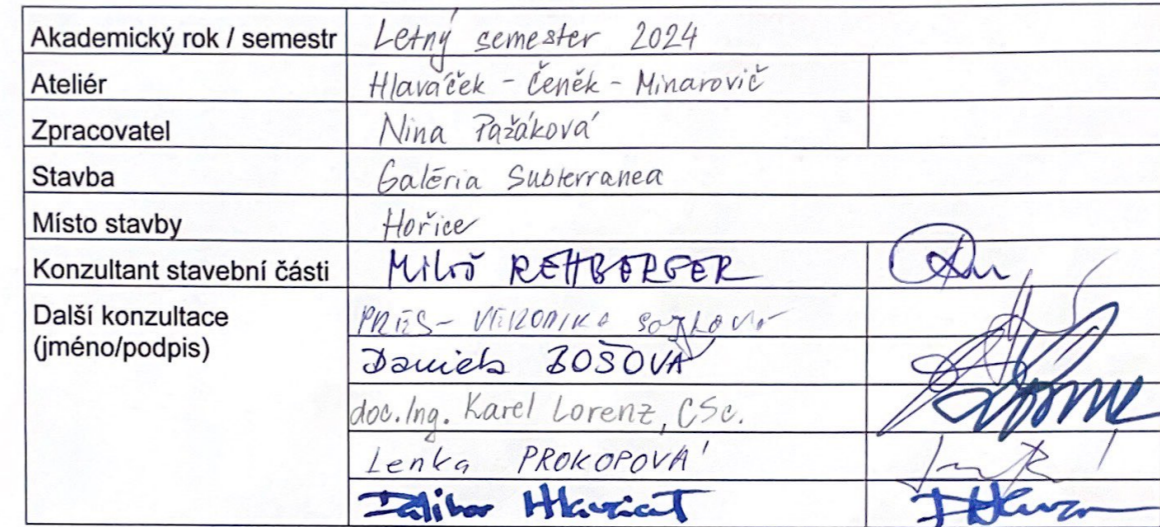 Akademický rok / semestr Letný semester 2024
Ateliér Hlaváček - Čeněk - Minarovič
Zpracovatel Nina Pažáková
Stavba Galéria Subterranea
Místo stavby Hořice
Konzultant stavební části Miloš REHBERGER
Další konzultace PRES - VERONIKA
(jméno/podpis) Daniela BOŠOVÁ
doc. Ing. Karel Lorenz, CSc.
Lenka PROKOPOVÁ
Dalibor